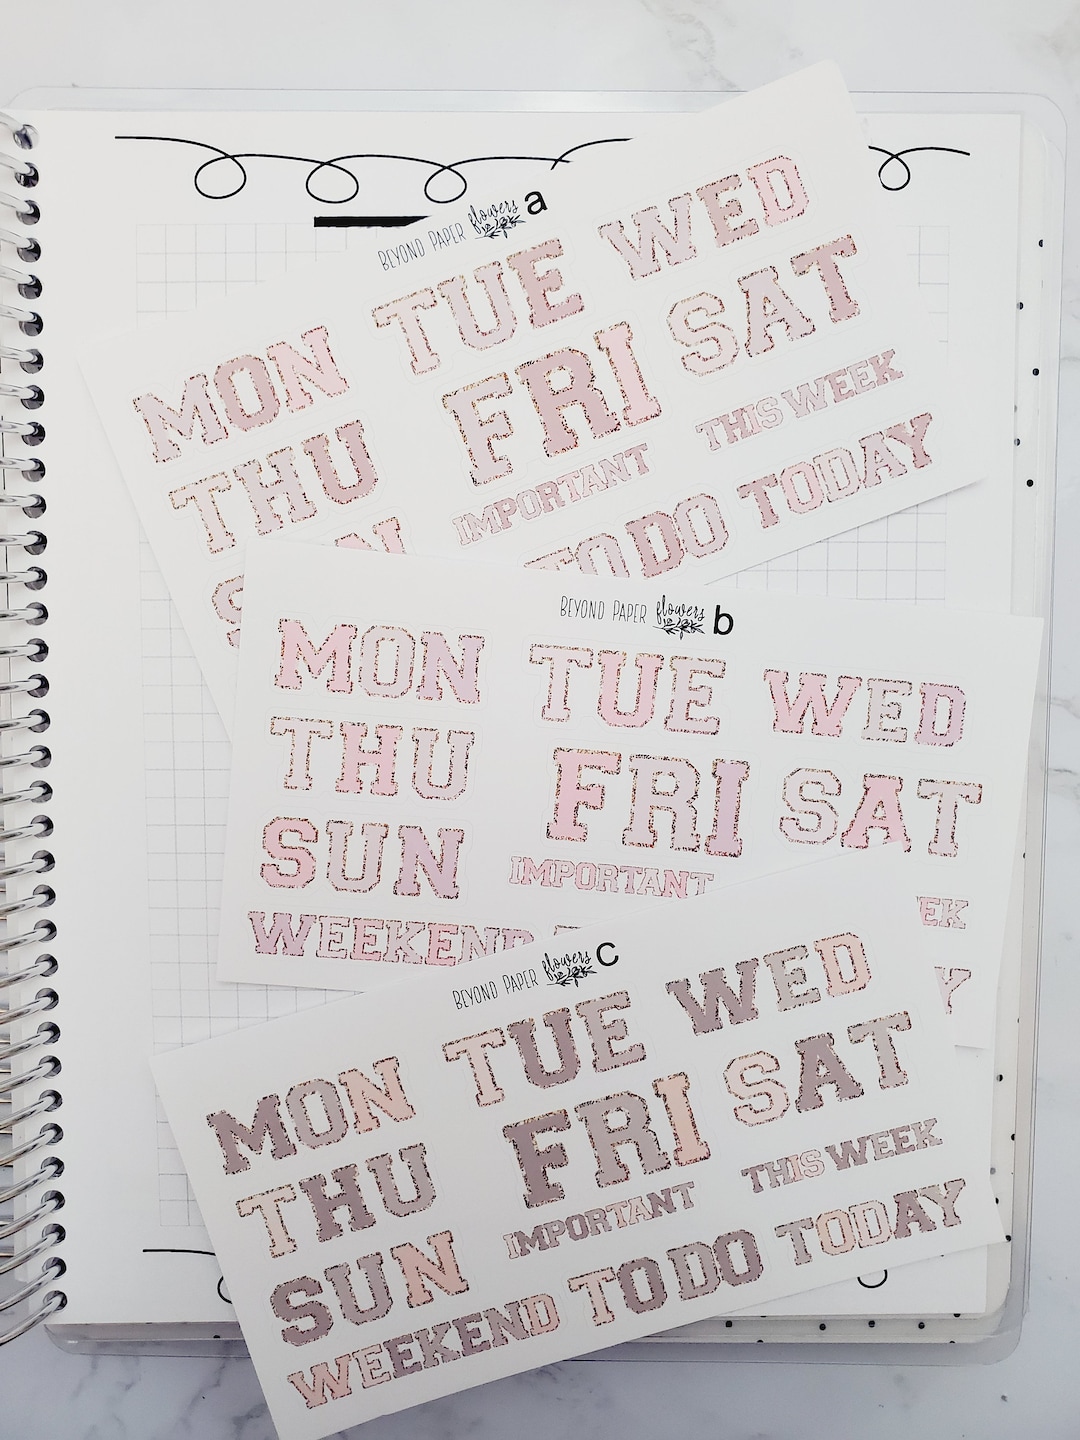 BEYOND PAPER flowers a
MON TUE WED
THU FRI SAT
IMPORTANT THIS WEEK
TO DO TODAY
BEYOND PAPER flowers b
MON TUE WED
THU FRI SAT
SUN IMPORTANT
WEEKEND
BEYOND PAPER flowers c
MON TUE WED
THU FRI SAT
SUN IMPORTANT THIS WEEK
WEEKEND TO DO TODAY